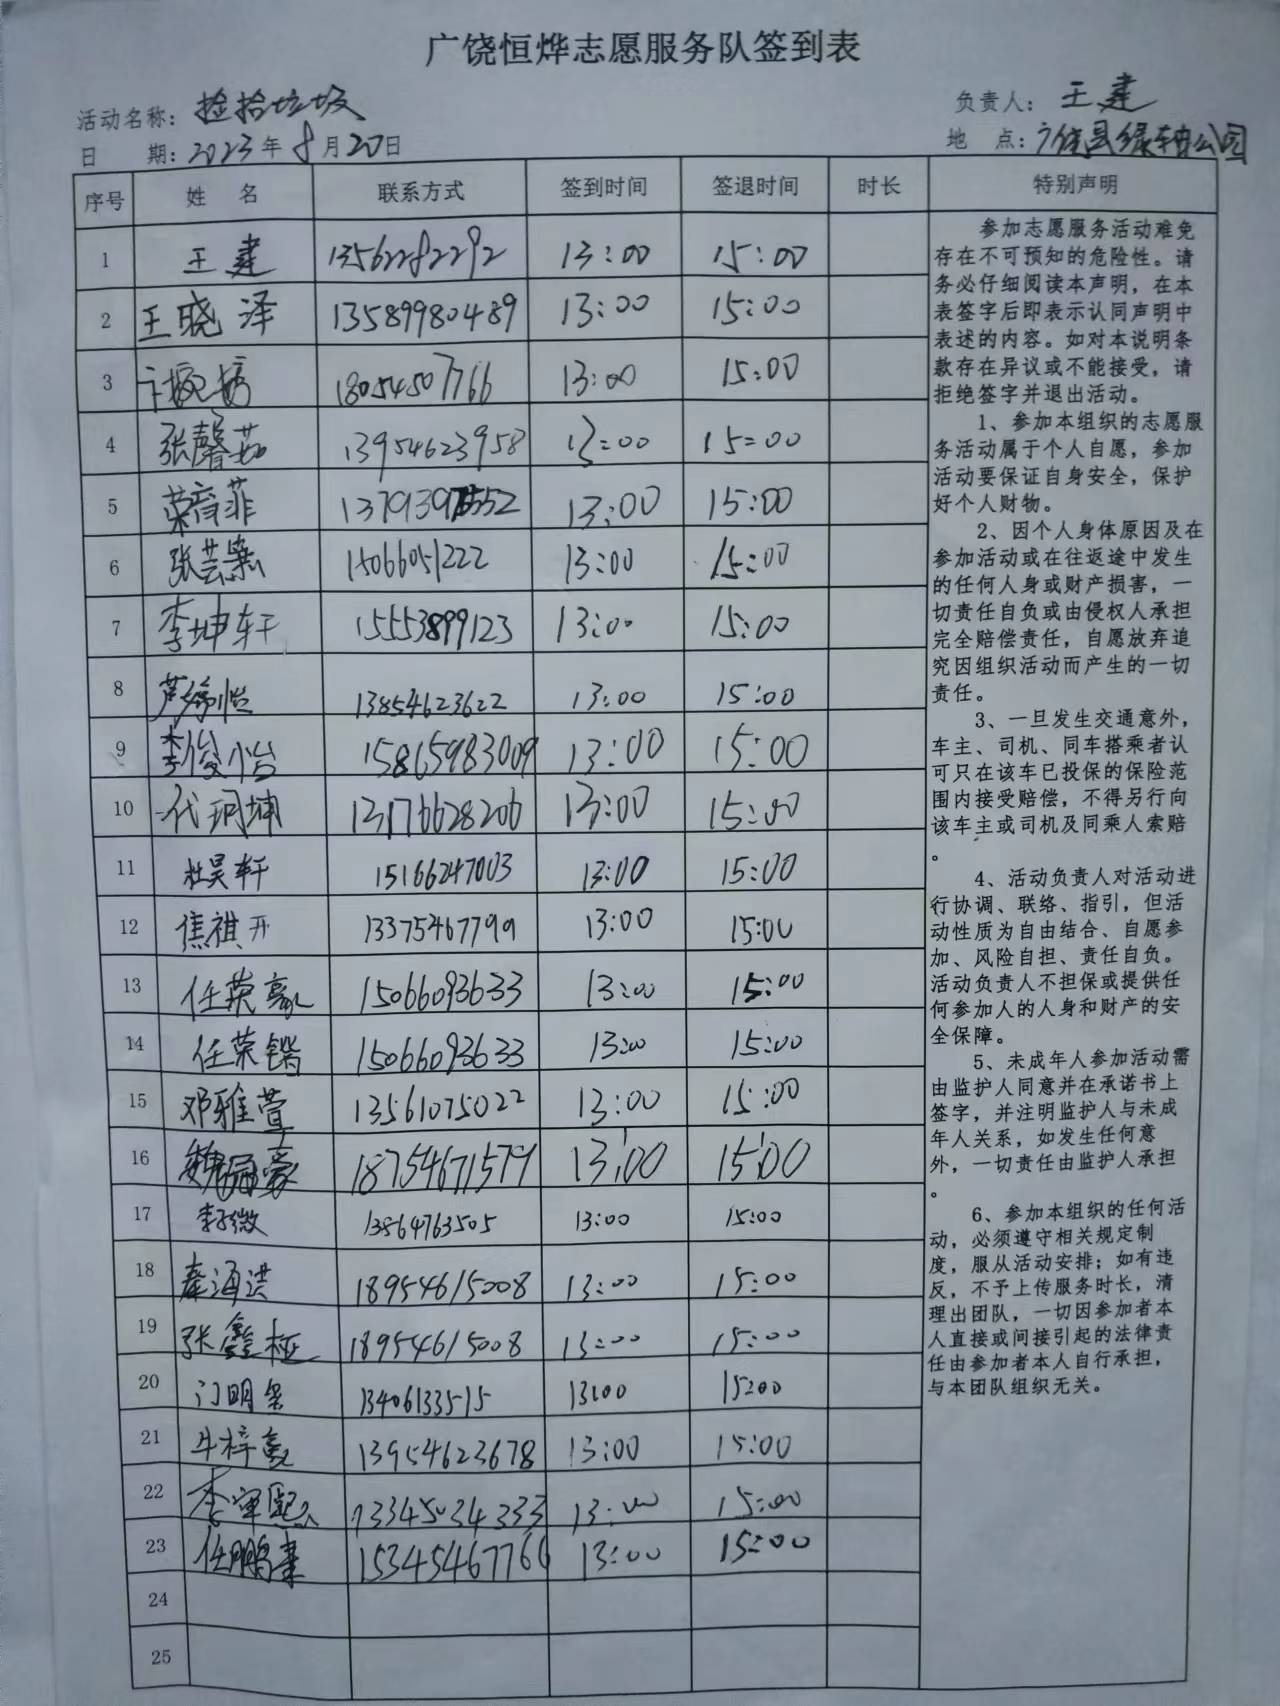 广饶恒烨志愿服务队签到表
活动名称：捡拾垃圾 负责人：王建
日 期：2023年8月20日 地 点：广饶县绿轴公园
序号 姓 名 联系方式 签到时间 签退时间 时长 特别声明
1 王建 13562282292 13:00 15:00
2 王晓泽 13589980489 13:00 15:00
3 18054507766 13:00 15:00
4 张馨茹 13954623958 13:00 15:00
5 荣育菲 13:00 15:00
6 张芸 15066051222 13:00 15:00
7 李坤轩 15553899123 13:00 15:00
8 13854623622 13:00 15:00
9 李俊怡 15865983009 13:00 15:00
10 代珂坤 13176628206 13:00 15:00
11 杜昊轩 15166247003 13:00 15:00
12 焦祺开 13375467799 13:00 15:00
13 任荣豪 15066093633 13:00 15:00
14 任荣锴 15066093633 13:00 15:00
15 邓雅萱 13561075022 13:00 15:00
16 魏 豪 18754671579 13:00 15:00
17 李微 13864763505 13:00 15:00
18 秦海洪 18954615008 13:00 15:00
19 张鑫桠 18954615008 13:00 15:00
20 门明 13406133515 13:00 15:00
21 牛梓豪 13954623678 13:00 15:00
22 李 熙 13345034333 13:00 15:00
23 任鹏 15345467766 13:00 15:00
24
25
参加志愿服务活动难免
存在不可预知的危险性。请
务必仔细阅读本声明，在本
表签字后即表示认同声明中
表述的内容。如对本说明条
款存在异议或不能接受，请
拒绝签字并退出活动。
1、参加本组织的志愿服
务活动属于个人自愿，参加
活动要保证自身安全，保护
好个人财物。
2、因个人身体原因及在
参加活动或在往返途中发生
的任何人身或财产损害，一
切责任自负或由侵权人承担
完全赔偿责任，自愿放弃追
究因组织活动而产生的一切
责任。
3、一旦发生交通意外，
车主、司机、同车搭乘者认
可只在该车已投保的保险范
围内接受赔偿，不得另行向
该车主或司机及同乘人索赔
。
4、活动负责人对活动进
行协调、联络、指引，但活
动性质为自由结合、自愿参
加、风险自担、责任自负。
活动负责人不担保或提供任
何参加人的人身和财产的安
全保障。
5、未成年人参加活动需
由监护人同意并在承诺书上
签字，并注明监护人与未成
年人关系，如发生任何意
外，一切责任由监护人承担
。
6、参加本组织的任何活
动，必须遵守相关规定制
度，服从活动安排；如有违
反，不予上传服务时长，清
理出团队，一切因参加者本
人直接或间接引起的法律责
任由参加者本人自行承担，
与本团队组织无关。